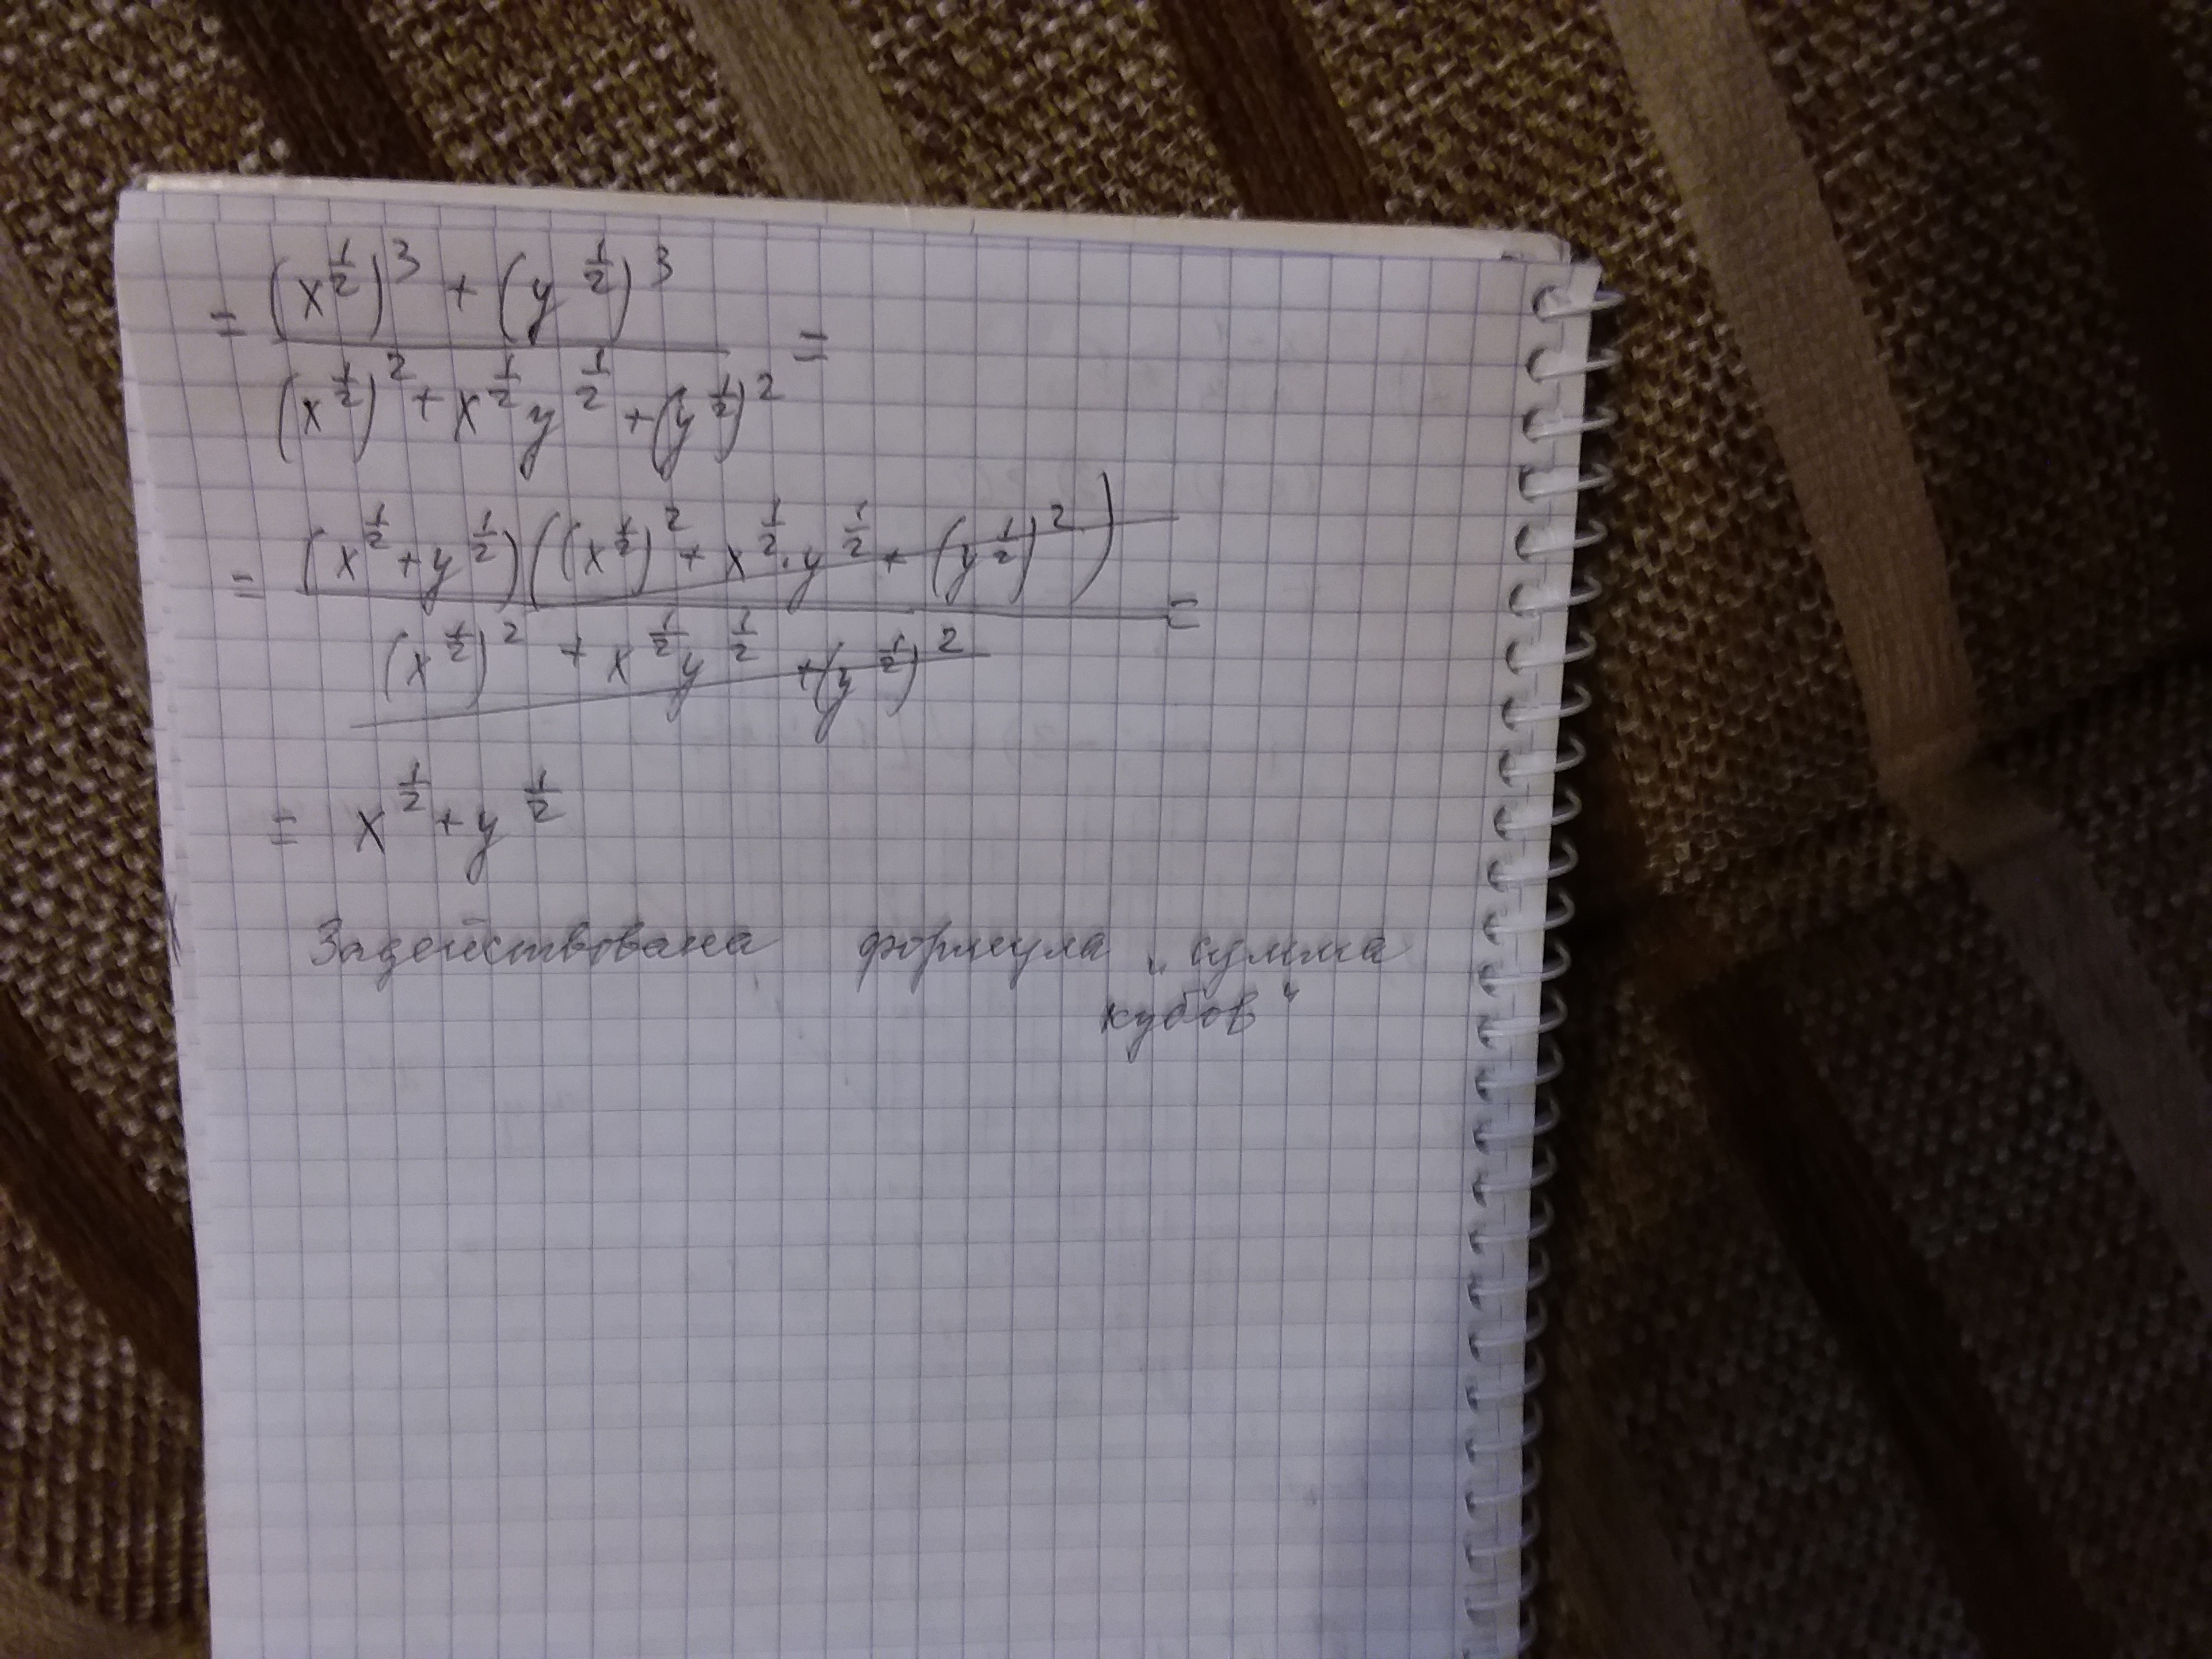 = \frac{(x^{\frac{1}{2}})^3 + (y^{\frac{1}{2}})^3}{(x^{\frac{1}{2}})^2 + x^{\frac{1}{2}} y^{\frac{1}{2}} + (y^{\frac{1}{2}})^2} =
= \frac{(x^{\frac{1}{2}} + y^{\frac{1}{2}})((x^{\frac{1}{2}})^2 + x^{\frac{1}{2}} \cdot y^{\frac{1}{2}} + (y^{\frac{1}{2}})^2)}{(x^{\frac{1}{2}})^2 + x^{\frac{1}{2}} y^{\frac{1}{2}} + (y^{\frac{1}{2}})^2} =
= x^{\frac{1}{2}} + y^{\frac{1}{2}}
Задействована формула „сумма
кубов“